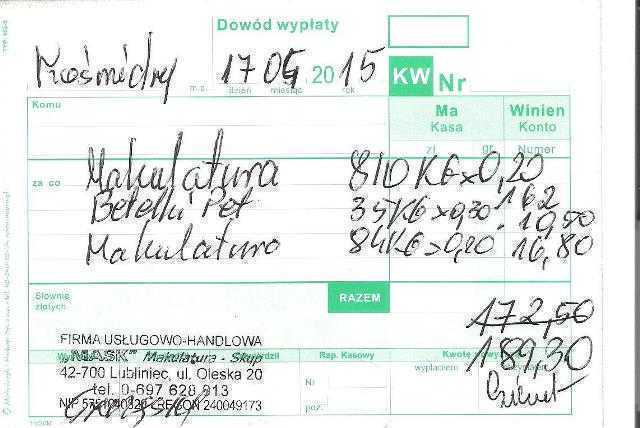 Dowód wypłaty
Kośmidry 17 05 2015 KW Nr
m.c. dzień miesiąc rok
Komu Ma Winien
Kasa Konto
zł gr Numer
za co Makulatura 810 KG x 0,20
162
Butelki Pet 35 KG x 0,30 - 10,50
Makulatura 84 KG x 0,20 - 16,80
Słownie
złotych RAZEM
172,50
189,30
FIRMA USŁUGOWO-HANDLOWA
"MASK" Makulatura - Skup
42-700 Lubliniec, ul. Oleska 20
tel. 0-697 628 913
REGON 240049173
Rap. Kasowy Kwotę
wypłaciłem
Nr
poz.